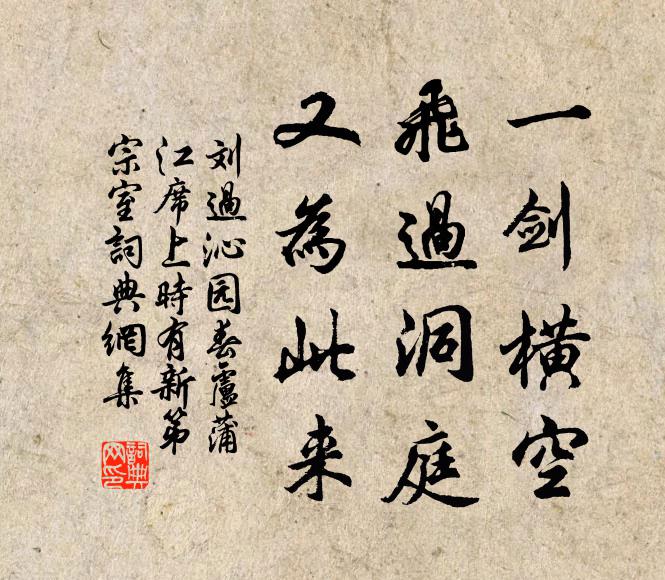 一剑横空
飛過洞庭
又為此来
刘過沁园春盧蒲
江席上時有新第
宗室詞典網集
詞典网印